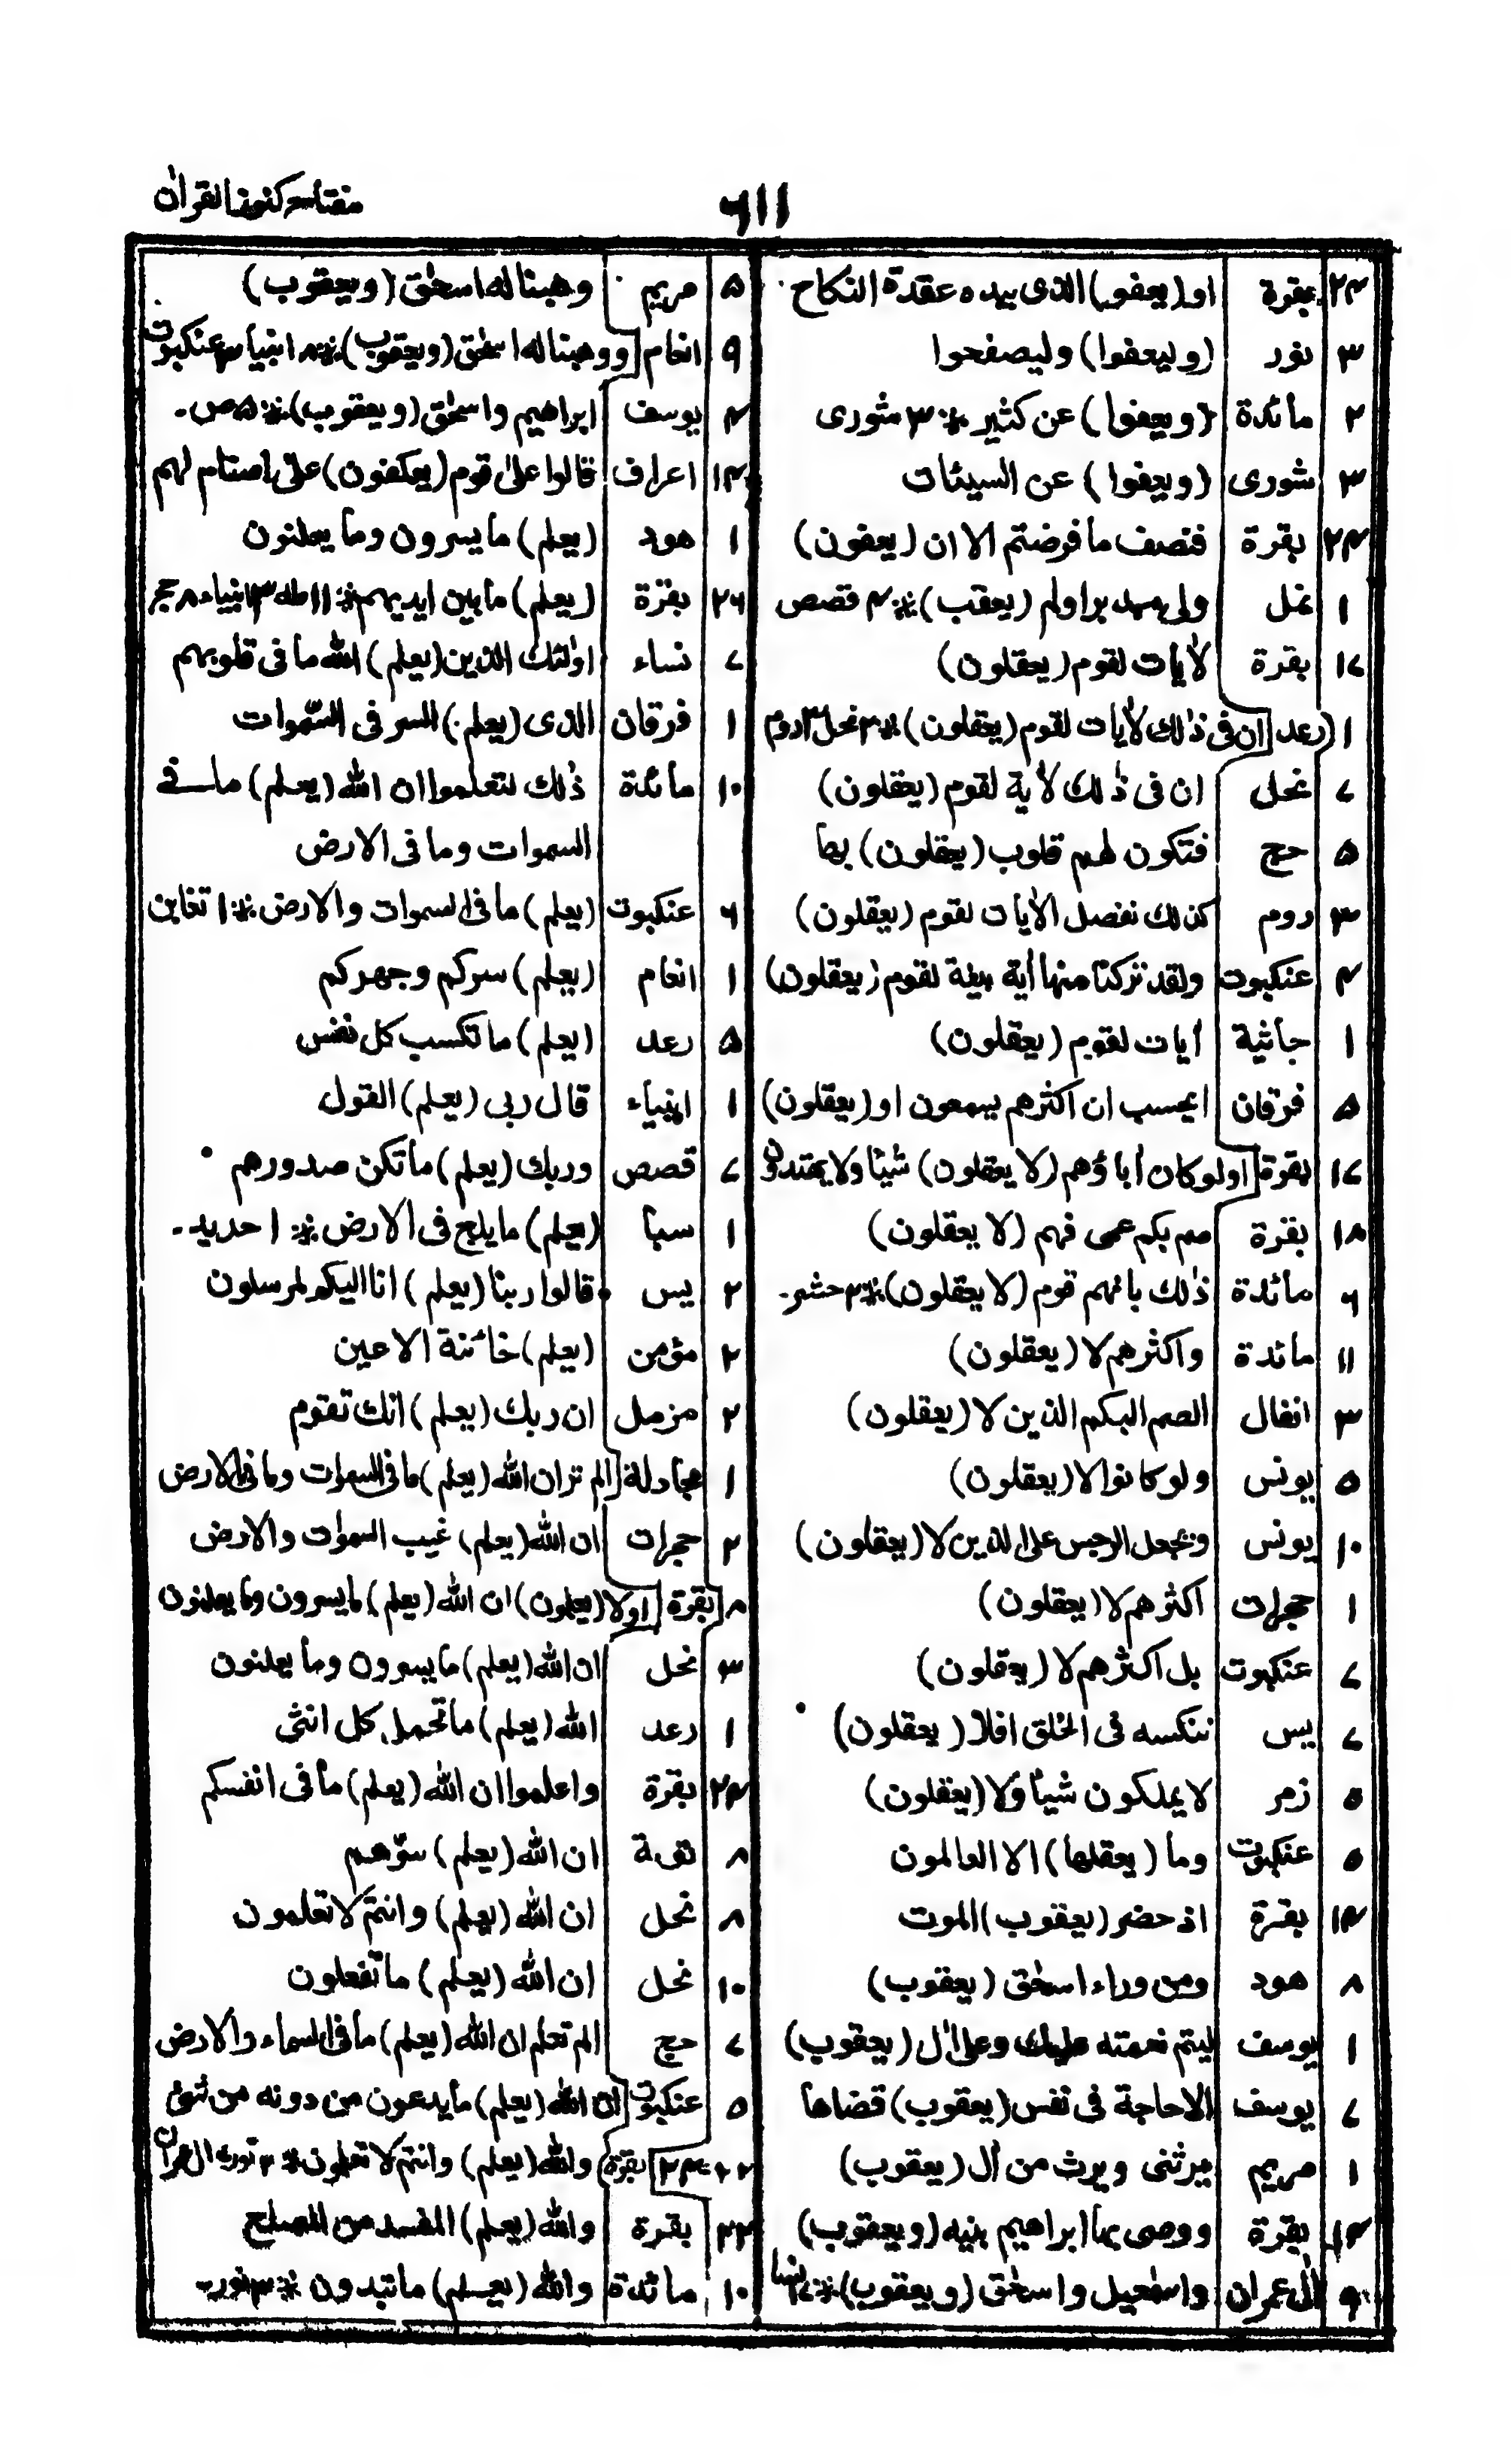 ۶۱۱ مفتاح کنوز القرآن
۳۴ بقرة او(يعفو) الذى بيده عقدة النكاح
۳ نور (وليعفوا) وليصفحوا
۲ مائدة (ويعفوا) عن كثير ؞ ۳ شورى
۳ شورى (ويعفوا) عن السيئات
بقرة فنصف ما فرضتم الا ان (يعفون)
۱ نمل ولى مدبرا ولم (يعقب) ؞ ۴ قصص
۱۷ بقرة لأيات لقوم (يعقلون)
۱ رعد ان فى ذٰلك لأيات لقوم (يعقلون) ؞ ۲ نحل ۳ روم
۷ نحل ان فى ذٰلك لأية لقوم (يعقلون)
۵ حج فتكون لهم قلوب (يعقلون) بها
۳ روم كذلك نفصل الأيات لقوم (يعقلون)
۴ عنكبوت ولقد تركنا منها أية بينة لقوم (يعقلون)
۱ جاثية أيات لقوم (يعقلون)
۵ فرقان ايحسب ان اكثرهم يسمعون او (يعقلون)
۱۷ بقرة اولو كان أباؤهم (لا يعقلون) شيئا ولا يهتدون
۱۸ بقرة صم بكم عمى فهم (لا يعقلون)
۶ مائدة ذٰلك بانهم قوم (لا يعقلون) ؞ ۲ حشر۔
۱۱ مائدة واكثرهم لا (يعقلون)
۳ انفال الصم البكم الذين لا (يعقلون)
۵ يونس ولو كانوا لا (يعقلون)
۱۰ يونس ونجعل الرجس على الذين لا (يعقلون)
۱ حجرات اكثرهم لا (يعقلون)
۷ عنكبوت بل اكثرهم لا (يعقلون)
۷ يس ننكسه فى الخلق افلا (يعقلون)
۵ زمر لا يملكون شيأ ولا (يعقلون)
۵ عنكبوت وما (يعقلها) الا العالمون
۱۴ بقرة اذ حضر (يعقوب) الموت
۸ هود ومن وراء اسحٰق (يعقوب)
۱ يوسف ليتم نعمته عليك وعلى أل (يعقوب)
۷ يوسف الا حاجة فى نفس (يعقوب) قضاها
۱ مريم يرثنى ويرث من أل (يعقوب)
۱۴ بقرة ووصى بها ابراهيم بنيه (ويعقوب)
۹ أل عمران واسمٰعيل واسحٰق (ويعقوب) ؞ نسا
۵ مريم وهبنا له اسحٰق (ويعقوب)
۹ انعام ووهبنا له اسحٰق (ويعقوب) ؞ انبياء ۳ عنكبوت
۴ يوسف ابراهيم واسحٰق (ويعقوب) ؞ ۵ ص۔
۱۴ اعراف قالوا على قوم (يعكفون) على اصنام لهم
۱ هود (يعلم) ما يسرون وما يعلنون
بقرة (يعلم) ما بين ايديهم ؞ ۱۱ طه ۳ انبياء ۸ حج
۷ نساء اولٰئك الذين (يعلم) الله ما فى قلوبهم
۱ فرقان الذى (يعلم) السر فى السّموات
۱۰ مائدة ذٰلك لتعلموا ان الله (يعلم) ما فے
السموات وما فى الارض
۶ عنكبوت (يعلم) ما فى السموات والارض ؞ ۱ تغابن
۱ انعام (يعلم) سركم وجهركم
۵ رعد (يعلم) ما تكسب كل نفس
۱ انبياء قال ربى (يعلم) القول
۷ قصص وربك (يعلم) ما تكن صدورهم
۱ سبأ (يعلم) ما يلج فى الارض ؞ ۱ حديد۔
۲ يس قالوا ربنا (يعلم) انا اليكم لمرسلون
۲ مؤمن (يعلم) خائنة الاعين
۲ مزمل ان ربك (يعلم) انك تقوم
۱ مجادلة الم تر ان الله (يعلم) ما فى السموات وما فى الارض
۲ حجرات ان الله (يعلم) غيب السموات والارض
۸ بقرة اولا (يعلمون) ان الله (يعلم) ما يسرون وما يعلنون
۳ نحل ان الله (يعلم) ما يسرون وما يعلنون
۱ رعد الله (يعلم) ما تحمل كل انثى
بقرة واعلموا ان الله (يعلم) ما فى انفسكم
۸ توبة ان الله (يعلم) سرّهم
۸ نحل ان الله (يعلم) وانتم لا تعلمون
۱۰ نحل ان الله (يعلم) ما تفعلون
۷ حج الم تعلم ان الله (يعلم) ما فى السماء والارض
۵ عنكبوت ان الله (يعلم) ما يدعون من دونه من شئ
بقرة والله (يعلم) وانتم لا تعلمون ؞ ۲ نور أل عمران
بقرة والله (يعلم) المفسد من المصلح
۱۰ مائدة والله (يعلم) ما تبدون ؞ ۳ نور